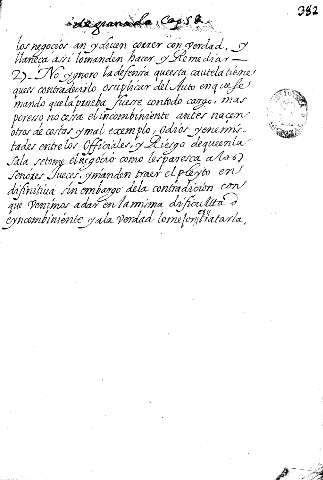 de granada, Caps 2
382
los negocios an y deven correr con verdad, y
llaneça assi lo manden hacer, y Remediar —
2) — No ygnoro la defensa que esta cautela tiene
que es contradecirlo e suplicar del Auto en que se
mando que la prueba fuese con todo cargo, mas
por eso no cesa el incombiniente antes nacen
otros de costas y mal exemplo, odios y enemis-
tades entre los Officiales, y Riesgo de que en la
Sala se tome el negocio como les paresca a los
señores Jueces, y manden traer el pleyto en
difinitiva sin embargo de la contradicion con
que venimos a dar en la misma dificultad o
e yncombiniente y a la verdad lo mejor